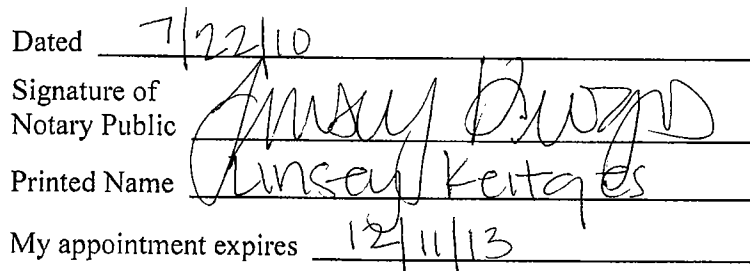 Dated 7/22/10
Signature of
Notary Public
Printed Name Linsey Keitges
My appointment expires 12/11/13